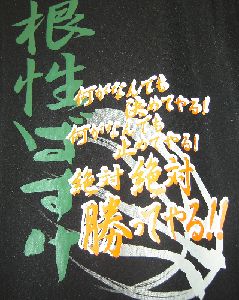 根性ばすけ
何がなんでも
決めてやる!
何がなんでも
止めてやる!
絶対 絶対
勝ってやる!!